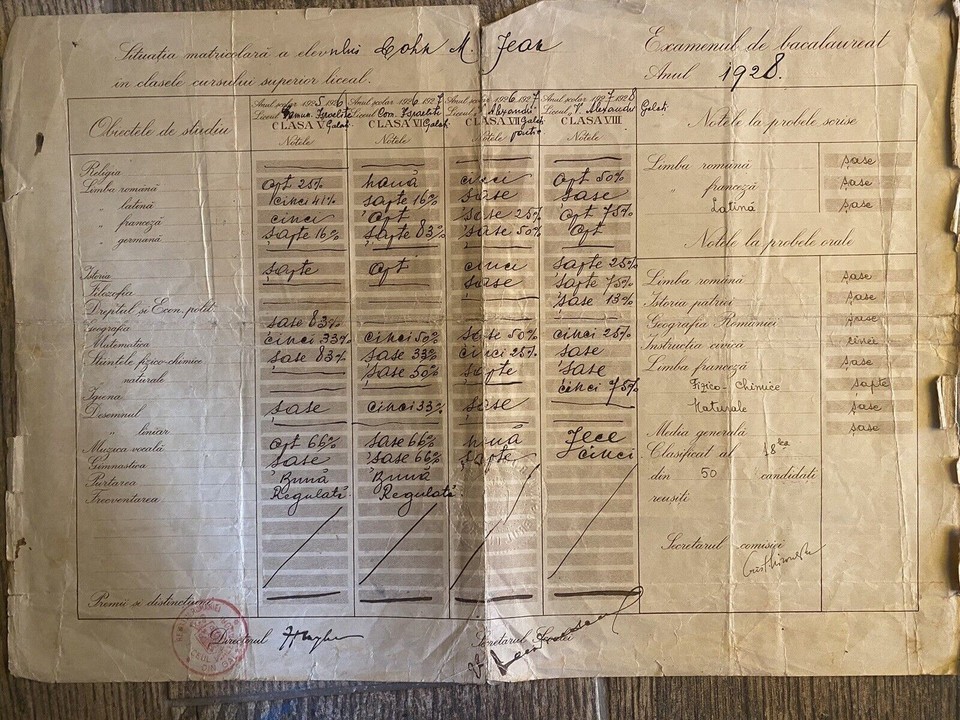 Situația matricolară a elevului Cohn M. Jean
in clasele cursului superior liceal.
Examenul de bacalaureat
Anul 1928.
Obiectele de studiu
Anul școlar 1925 1926
Liceul Comun. Israelite
CLASA V Galați
Notele
Anul școlar 1926 1927
Liceul Com Israelite
CLASA VI Galați
Notele
Anul școlar 1926 1927
Liceul V. Alexandri
CLASA VII Galați
Notele
Anul școlar 1927 1928
Liceul „V. Alexandri Galați
CLASA VIII
Notele
Notele la probele scrise
Religia
Limba română opt 25% nouă cinci opt 50%
„ latină cinci 41% șapte 16% șase șase
„ franceză cinci opt șase 25% opt 75%
„ germană șapte 16% șapte 83% șase 50% opt
Istoria șapte opt cinci șapte 25%
Filozofia șase șapte 75%
Dreptul si Econ. polit. șase 13%
Geografia șase 83%
Matematica cinci 33% cinci 50% șase 50% cinci 25%
Stiintele fizico-chimice șase 83% șase 33% cinci 25% șase
naturale șase 50% șapte șase
Igiena cinci 75%
Desemnul șase cinci 33% șase
„ liniar
Muzica vocală opt 66% șase 66% nouă Zece
Gimnastica șase șase 66% șapte cinci
Purtarea Bună Bună
Frecventarea Regulată Regulată
Premii si distincțiuni
Limba română șase
„ franceză șase
Latină șase
Notele la probele orale
Limba română șase
Istoria patriei șase
Geografia României șase
Instructia civică cinci
Limba franceză șase
Fizico-Chimice șapte
Naturale șase
Media generală șase
Clasificat al 18lea
din 50 candidati
reusiti
Secretarul comisiei
Directorul
Secretarul Scoalei